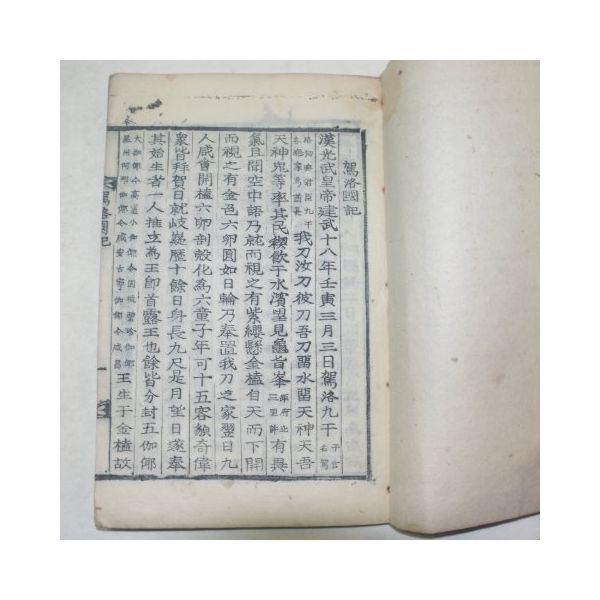 駕洛國記
漢光武皇帝建武十八年壬寅三月三日駕洛九干
我刀汝刀彼刀吾刀留水留天神天吾
天神鬼等率其民禊飮于水濱望見龜旨峯 有異
氣且聞空中語乃就而視之有紫纓懸金榼自天而下開
而視之有金色六卵圓如日輪乃奉置我刀之家翌日九
人咸會開榼六卵剖殼化爲六童子年可十五容貌奇偉
衆皆拜賀日就岐嶷歷十餘日身長九尺是月望日遂奉
其始生者一人推立爲王卽首露王也餘皆分封五伽倻
王生于金榼故
駕洛國記
一